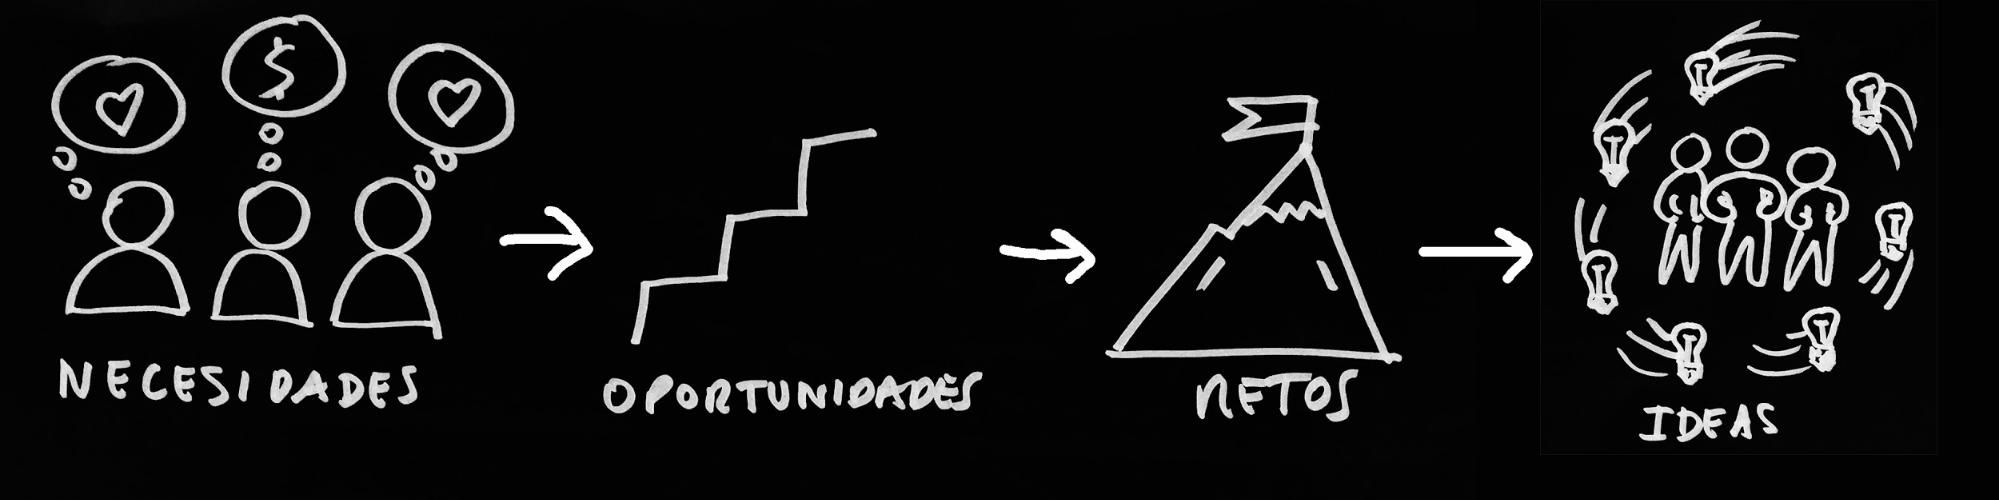 $
NECESIDADES
OPORTUNIDADES
RETOS
IDEAS